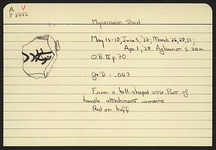 A V
P 2222
Mycenaean Sherd
May 15-18, June 5, '33; March 26, 28, 31;
Apr. 1, '38
O.B. II p. 70
H. 0.063
From a bell-shaped vase Part of
handle attachment remains
Red on buff